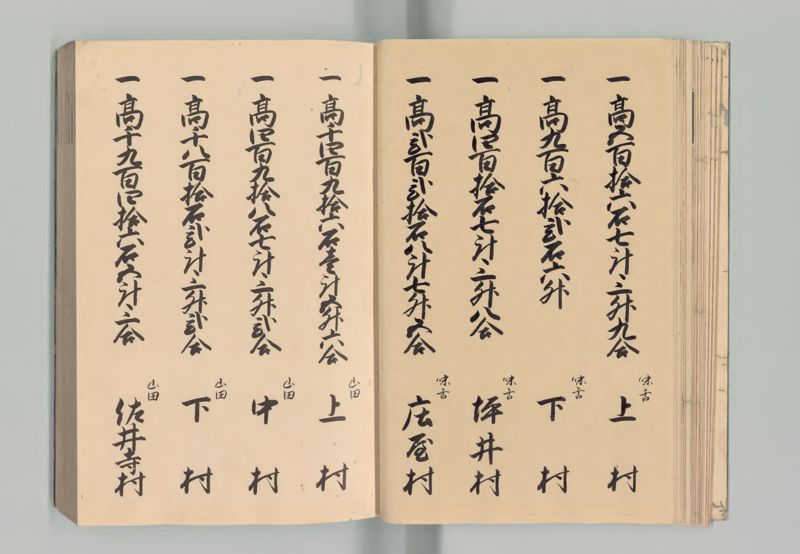 一高五百拾六石七斗三升九合 味舌上村
一高九百六拾弐石六升 味舌下村
一高四百拾石七斗三升八合 味舌坪井村
一高弐百弐拾石八斗七升五合 味舌庄屋村
一高千四百九拾六石壱斗五升六合 山田上村
一高四百九拾八石七斗三升弐合 山田中村
一高千八百拾石弐斗三升弐合 山田下村
一高千九百四拾六石五斗三合 佐井寺村